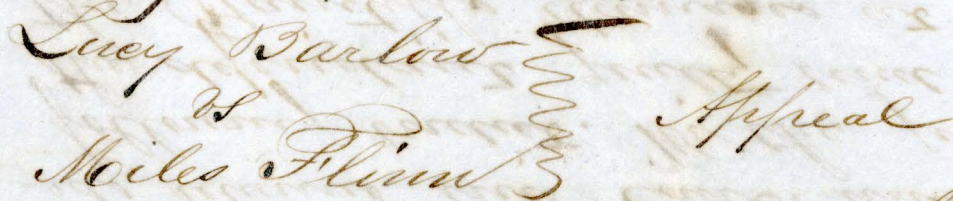 Lucy Barlow
vs
Miles Flinn
Appeal